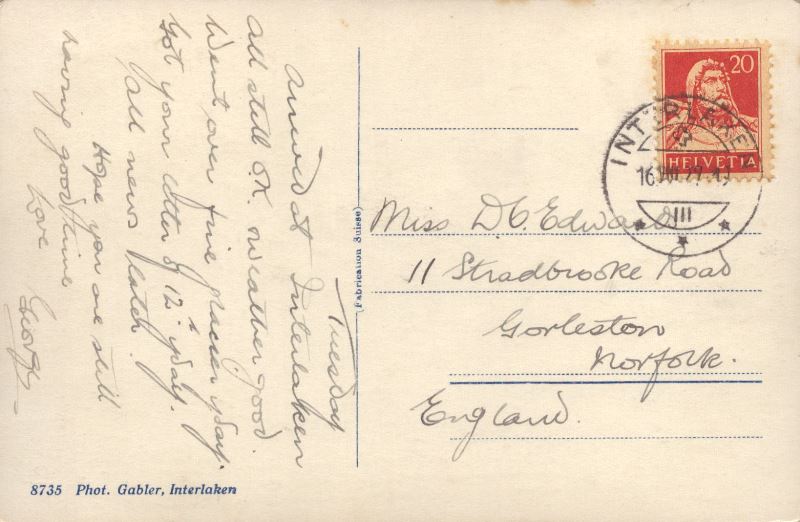 Tuesday
Arrived at Interlaken
all still OK. Weather good.
Went over fine glacier yday.
Got your letter of 12th yday.
all news
Hope you are still
having good time
Love George
(Fabrication Suisse)
20
HELVETIA
INTERLAKEN
16.VIII.27
III
Miss D C. Edwards
11 Stradbrooke Road
Gorleston
Norfolk.
England.
8735 Phot. Gabler, Interlaken